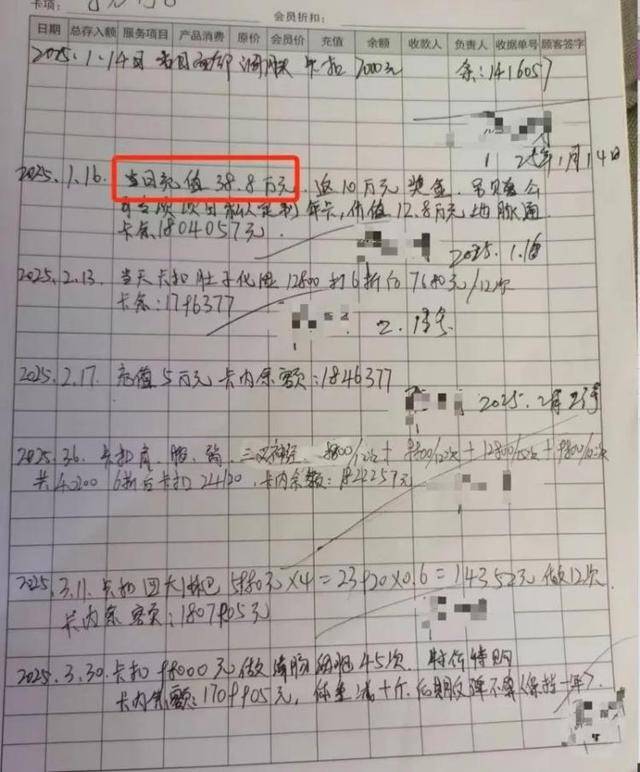 卡项:
会员折扣:
日期 总存入额 服务项目 产品消费 原价 会员价 充值 余额 收款人 负责人 收据单号 顾客签字
2025.1.14日 卡扣 7000元 余:1416057
25年1月14日
2025.1.16. 当日充值38.8万元. 返10万元奖金.
年卡,价值12.8万元 地脉通
卡余1804057元.
2025.1.16
2025.2.13. 当天卡扣肚子 12800打6折后7680元/12次
卡余:1796377
2.13号
2025.2.17. 充值5万元 卡内余额:1846377
2025.2月23号
2025.3.6. 卡扣肩、腿、 9800/12次+9800/12次+12800/12次+9800/12次
共40200 6折后卡扣24120. 卡内余额:1822257元
2025.3.11. 卡扣四大淋巴 5980元×4=23920×0.6=14352元 做12次
卡内余额:1807905元
2025.3.30. 卡扣98000元做 45次. 特价特购
卡内余额:1709905元, 体重减十斤. 后期反弹不算(保持一年).